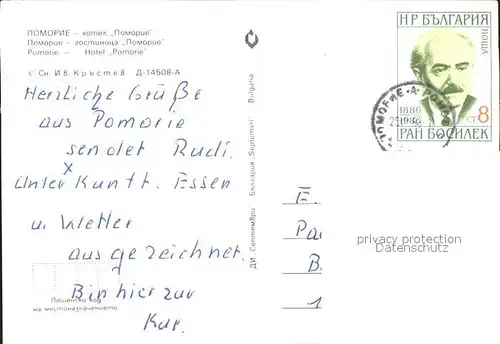 ПОМОРИЕ – хотел „Поморие"
Поморие – гостиница „Поморие"
Pomorie – Hotel „Pomorie"
с Сн. Ив. Кръстев Д-14508-А
Herzliche Grüße
aus Pomorie
sendet Rudi.
Unterkunft. Essen
u. Wetter
ausgezeichnet.
Bin hier zur
Kur.
Пощенски код
на местоназначението
ДИ „Септември" България „Septemvri" Bulgaria
НР БЪЛГАРИЯ
ПОЩА
1886
1986
СТ 8
РАН БОСИЛЕК
ПОМОРИЕ
E.
B
1
privacy protection
Datenschutz